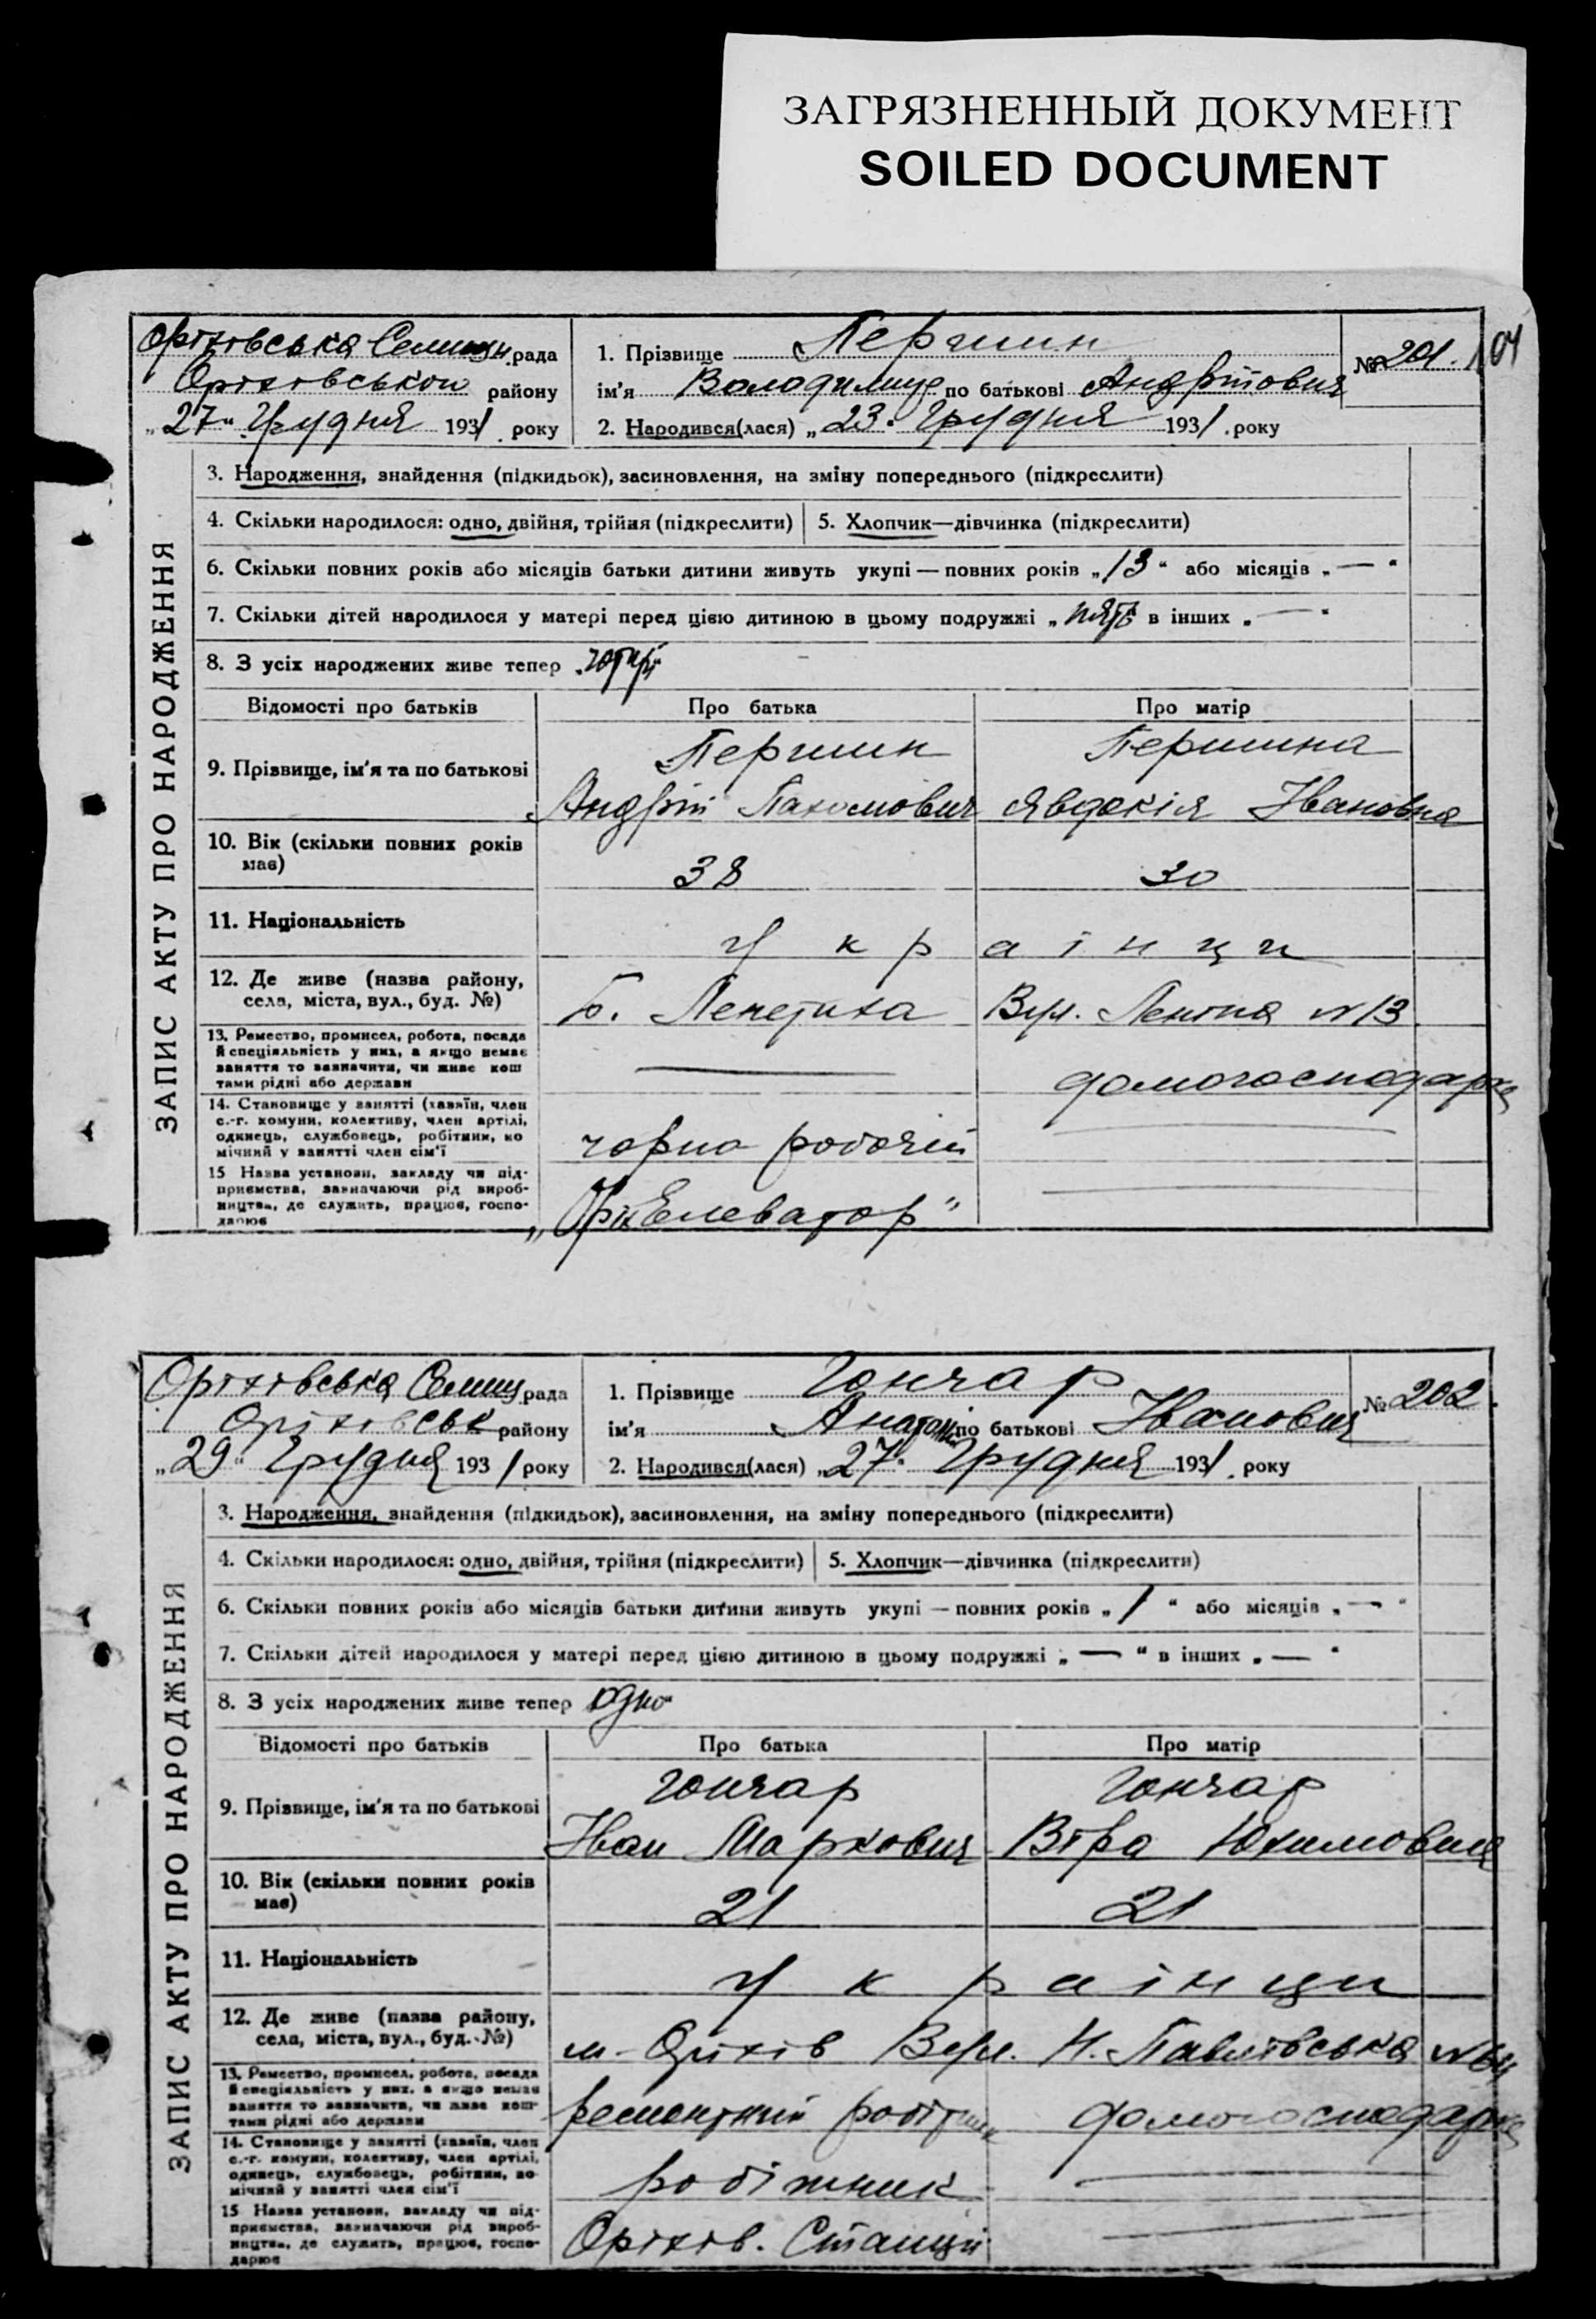 ЗАГРЯЗНЕННЫЙ ДОКУМЕНТ
SOILED DOCUMENT
Оріхівська Селищ. рада
Оріхівськои району
„27“ Грудня 1931 року
1. Прізвище Першин
ім'я Володимир по батькові Андрійович
2. Народився(лася) „23“ Грудня 1931 року
№ 201.
ЗАПИС АКТУ ПРО НАРОДЖЕННЯ
3. Народження, знайдення (підкидьок), засиновлення, на зміну попереднього (підкреслити)
4. Скільки народилося: одно, двійня, трійня (підкреслити) 5. Хлопчик—дівчинка (підкреслити)
6. Скільки повних років або місяців батьки дитини живуть укупі — повних років „13“ або місяців „—“
7. Скільки дітей народилося у матері перед цією дитиною в цьому подружжі „пять в інших „—“
8. З усіх народжених живе тепер
Відомості про батьків Про батька Про матір
9. Прізвище, ім'я та по батькові
Першин Першина
Андрій Пахомович Явдокія Івановна
10. Вік (скільки повних років має) 38 30
11. Національність Українци
12. Де живе (назва району, села, міста, вул., буд. №) Вул. Леніна №13
13. Ремество, промисел, робота, посада
й спеціяльність у них, а якщо немає
заняття то зазначити, чи живе кош
тами рідні або держави
— домогосподарка
14. Становище у занятті (хазяїн, член
с.-г. комуни, колективу, член артілі,
одинець, службовець, робітник, по
мічний у занятті член сім'ї
чорно робочій —
15 Назва установи, закладу чи під-
приємства, зазначаючи рід вироб-
ництва, де служить, працює, госпо-
дарює
Елеватор“ —
Оріхівська Селищ рада
Оріхівськ району
„29“ Грудня 1931 року
1. Прізвище Гончар
ім'я Анатолій по батькові Іванович
2. Народився(лася) „27“ Грудня 1931. року
№ 202.
ЗАПИС АКТУ ПРО НАРОДЖЕННЯ
3. Народження, знайдення (підкидьок), засиновлення, на зміну попереднього (підкреслити)
4. Скільки народилося: одно, двійня, трійня (підкреслити) 5. Хлопчик—дівчинка (підкреслити)
6. Скільки повних років або місяців батьки дитини живуть укупі — повних років „1“ або місяців „—“
7. Скільки дітей народилося у матері перед цією дитиною в цьому подружжі „—“ в інших „—“
8. З усіх народжених живе тепер одно
Відомості про батьків Про батька Про матір
9. Прізвище, ім'я та по батькові
Гончар Гончар
Іван Маркович Віра Юхимовна
10. Вік (скільки повних років має) 21 21
11. Національність Українци
12. Де живе (назва району, села, міста, вул., буд. №) м. Оріхів Вул.
13. Ремество, промисел, робота, посада
й спеціяльність у них, а якщо немає
заняття то зазначити, чи живе кош-
тами рідні або держави
ремонтний робітник домогосподарка
14. Становище у занятті (хазяїн, член
с.-г. комуни, колективу, член артілі,
одинець, службовець, робітник, по
мічний у занятті член сім'ї
робітник —
15 Назва установи, закладу чи під-
приємства, зазначаючи рід вироб-
ництва, де служить, працює, госпо-
дарює
Оріхів. Станція —